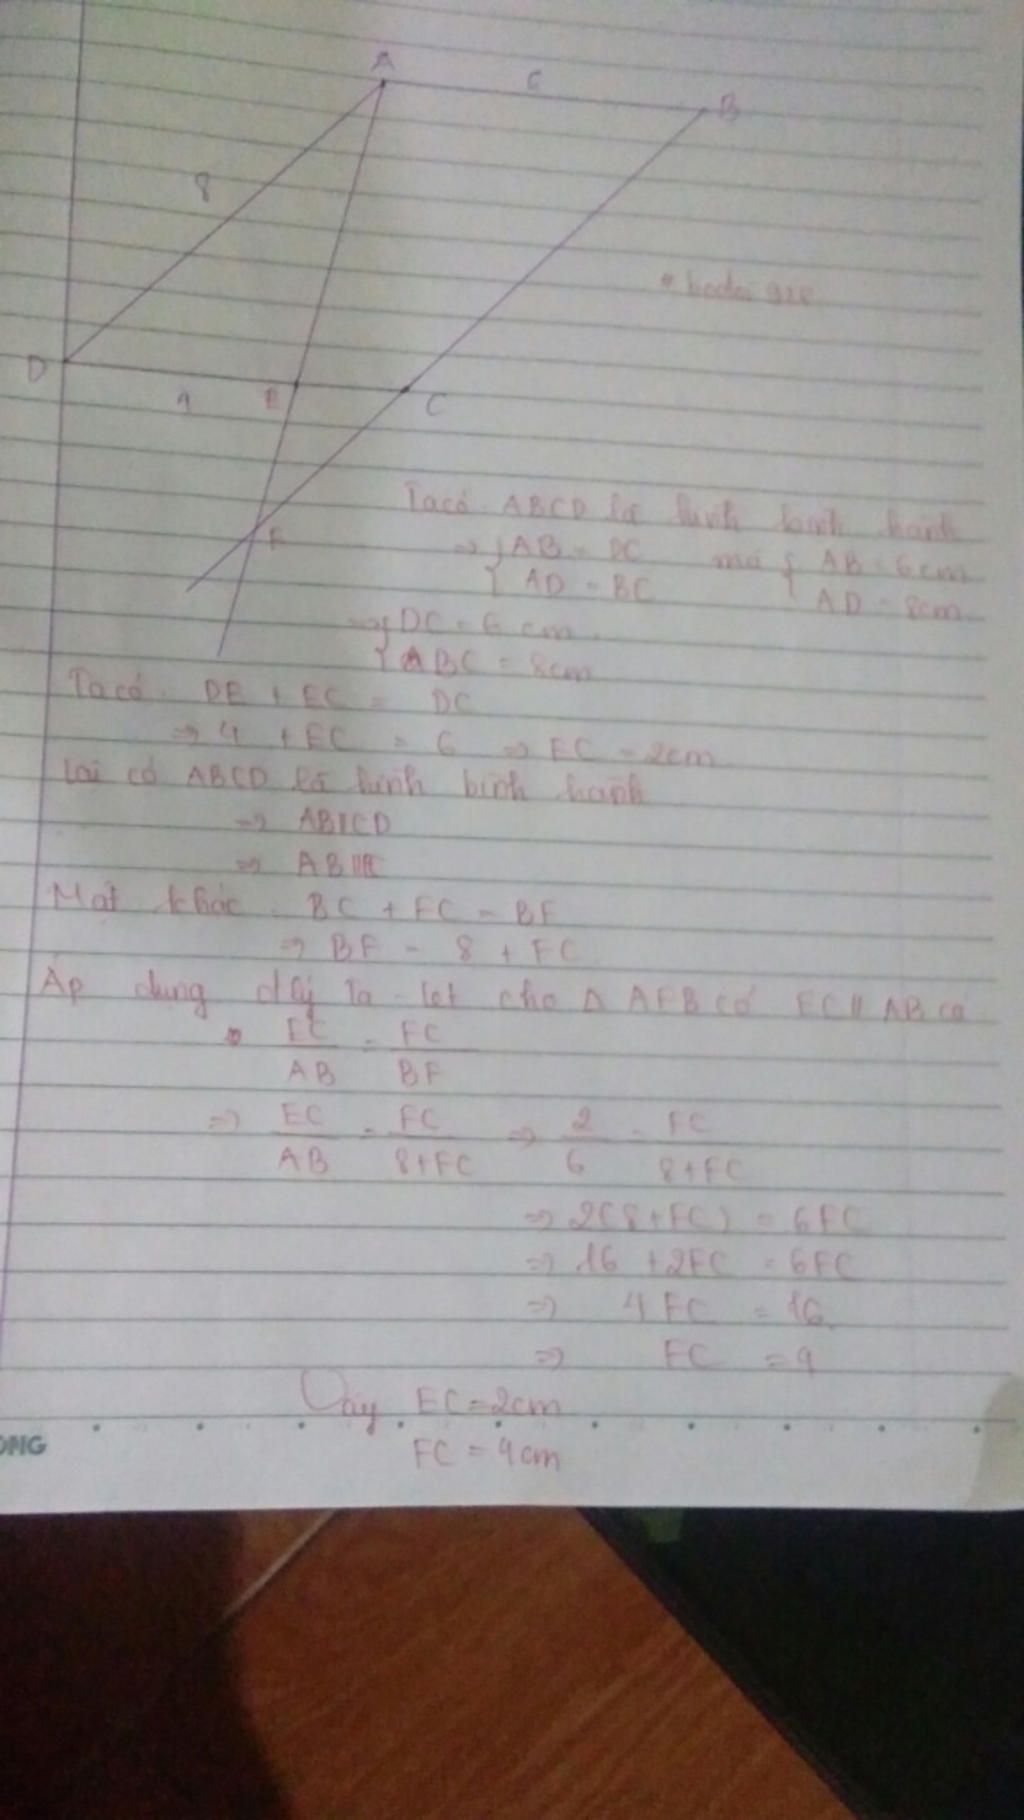 A
6
B
8
D
4
E
C
F
Ta có ABCD là hình bình hành
=> { AB = DC mà { AB = 6cm
{ AD = BC { AD = 8cm
=> { DC = 6 cm
{ BC = 8cm
Ta có DE + EC = DC
=> 4 + EC = 6 => EC = 2cm
Lại có ABCD là hình bình hành
=> AB//CD
=> AB//EC
Mặt khác BC + FC = BF
=> BF = 8 + FC
Áp dụng đ/lý Ta-let cho Δ AFB có EC // AB có
EC/AB = FC/BF
=> EC/AB = FC/8+FC => 2/6 = FC/8+FC
=> 2(8+FC) = 6FC
=> 16 + 2FC = 6FC
=> 4FC = 16
=> FC = 4
Vậy EC = 2cm
ONG
FC = 4cm